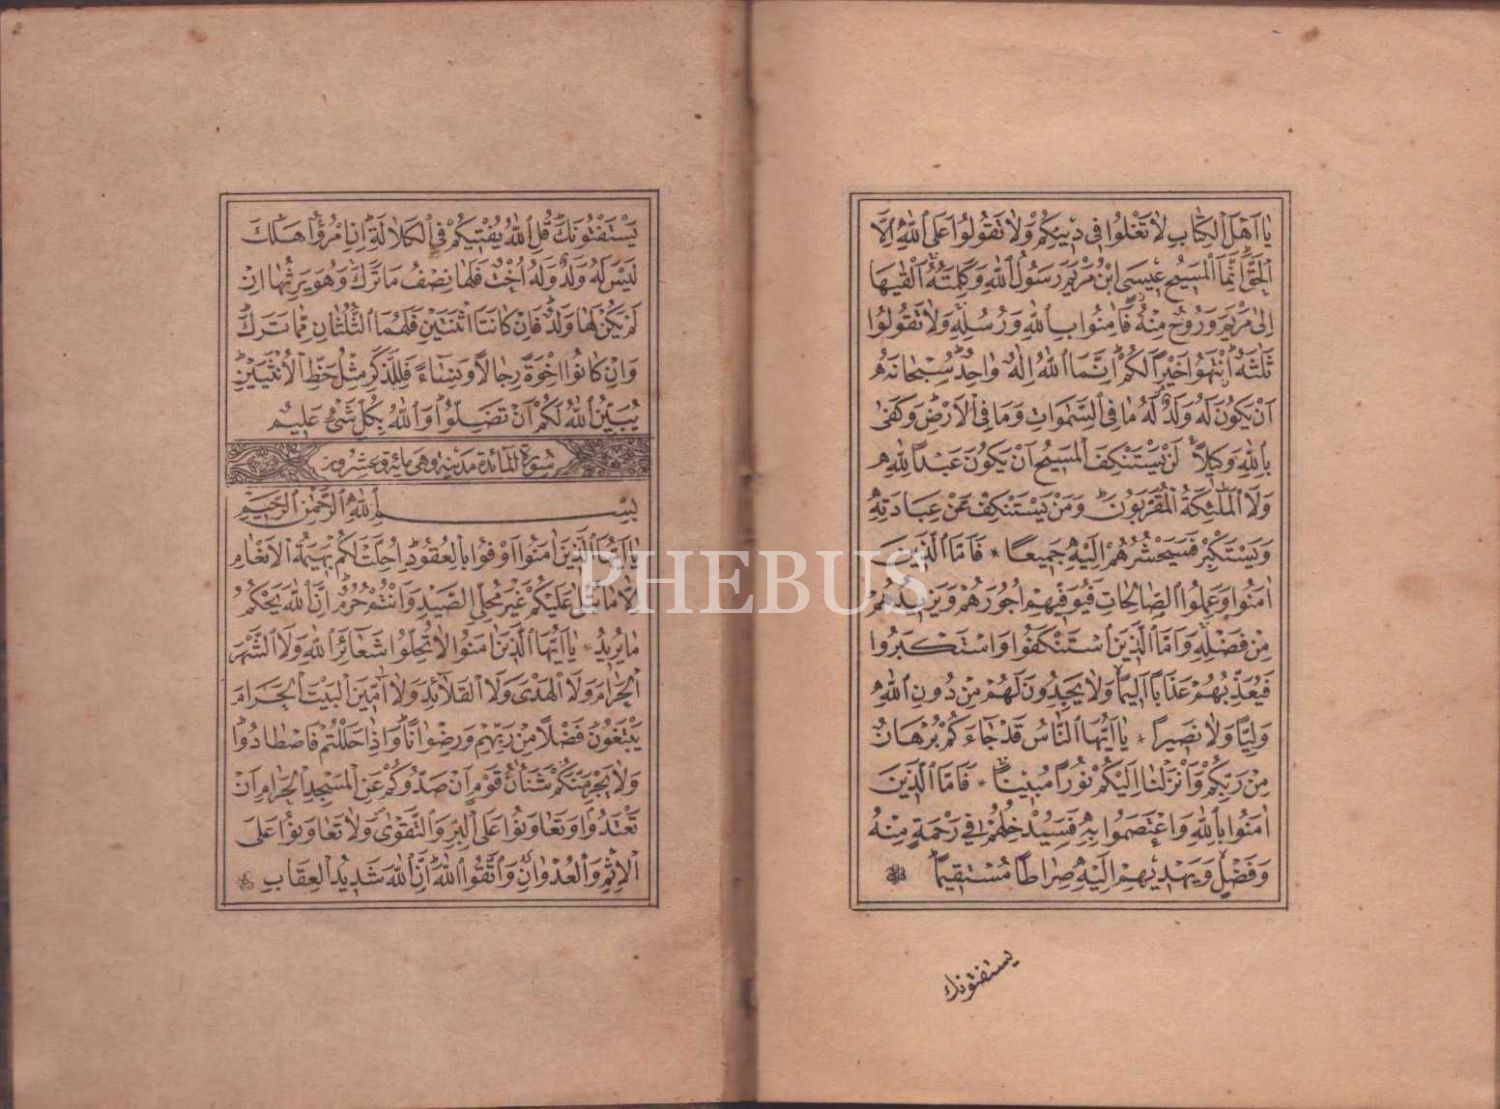 يَا اَهْلَ الْكِتَابِ لَا تَغْلُوا فِى دِينِكُمْ وَلَا تَقُولُوا عَلَى اللّٰهِ اِلَّا
الْحَقَّ اِنَّمَا الْمَسِيحُ عِيسَى ابْنُ مَرْيَمَ رَسُولُ اللّٰهِ وَكَلِمَتُهُ اَلْقٰيهَا
اِلٰى مَرْيَمَ وَرُوحٌ مِنْهُ فَاٰمِنُوا بِاللّٰهِ وَرُسُلِهِ وَلَا تَقُولُوا
ثَلٰثَةٌ اِنْتَهُوا خَيْرًا لَكُمْ اِنَّمَا اللّٰهُ اِلٰهٌ وَاحِدٌ سُبْحَانَهُ
اَنْ يَكُونَ لَهُ وَلَدٌ لَهُ مَا فِى السَّمٰوَاتِ وَمَا فِى الْاَرْضِ وَكَفٰى
بِاللّٰهِ وَكِيلًا لَنْ يَسْتَنْكِفَ الْمَسِيحُ اَنْ يَكُونَ عَبْدًا لِلّٰهِ
وَلَا الْمَلٰئِكَةُ الْمُقَرَّبُونَ وَمَنْ يَسْتَنْكِفْ عَنْ عِبَادَتِهِ
وَيَسْتَكْبِرْ فَسَيَحْشُرُهُمْ اِلَيْهِ جَمِيعًا * فَاَمَّا الَّذِينَ
اٰمَنُوا وَعَمِلُوا الصَّالِحَاتِ فَيُوَفِّيهِمْ اُجُورَهُمْ وَيَزِيدُهُمْ
مِنْ فَضْلِهِ وَاَمَّا الَّذِينَ اسْتَنْكَفُوا وَاسْتَكْبَرُوا
فَيُعَذِّبُهُمْ عَذَابًا اَلِيمًا وَلَا يَجِدُونَ لَهُمْ مِنْ دُونِ اللّٰهِ
وَلِيًّا وَلَا نَصِيرًا * يَا اَيُّهَا النَّاسُ قَدْ جَاءَكُمْ بُرْهَانٌ
مِنْ رَبِّكُمْ وَاَنْزَلْنَا اِلَيْكُمْ نُورًا مُبِينًا * فَاَمَّا الَّذِينَ
اٰمَنُوا بِاللّٰهِ وَاعْتَصَمُوا بِهِ فَسَيُدْخِلُهُمْ فِى رَحْمَةٍ مِنْهُ
وَفَضْلٍ وَيَهْدِيهِمْ اِلَيْهِ صِرَاطًا مُسْتَقِيمًا
يستفتونك
يَسْتَفْتُونَكَ قُلِ اللّٰهُ يُفْتِيكُمْ فِى الْكَلَالَةِ اِنِ امْرُؤٌا هَلَكَ
لَيْسَ لَهُ وَلَدٌ وَلَهُ اُخْتٌ فَلَهَا نِصْفُ مَا تَرَكَ وَهُوَ يَرِثُهَا اِنْ
لَمْ يَكُنْ لَهَا وَلَدٌ فَاِنْ كَانَتَا اثْنَتَيْنِ فَلَهُمَا الثُّلُثَانِ مِمَّا تَرَكَ
وَاِنْ كَانُوا اِخْوَةً رِجَالًا وَنِسَاءً فَلِلذَّكَرِ مِثْلُ حَظِّ الْاُنْثَيَيْنِ
يُبَيِّنُ اللّٰهُ لَكُمْ اَنْ تَضِلُّوا وَاللّٰهُ بِكُلِّ شَىْءٍ عَلِيمٌ
سورة المائدة مدنية وهى مائة وعشرون
بِسْمِ اللّٰهِ الرَّحْمٰنِ الرَّحِيمِ
يَا اَيُّهَا الَّذِينَ اٰمَنُوا اَوْفُوا بِالْعُقُودِ اُحِلَّتْ لَكُمْ بَهِيمَةُ الْاَنْعَامِ
اِلَّا مَا يُتْلٰى عَلَيْكُمْ غَيْرَ مُحِلِّى الصَّيْدِ وَاَنْتُمْ حُرُمٌ اِنَّ اللّٰهَ يَحْكُمُ
مَا يُرِيدُ * يَا اَيُّهَا الَّذِينَ اٰمَنُوا لَا تُحِلُّوا شَعَائِرَ اللّٰهِ وَلَا الشَّهْرَ
الْحَرَامَ وَلَا الْهَدْىَ وَلَا الْقَلَائِدَ وَلَا اٰمِّينَ الْبَيْتَ الْحَرَامَ
يَبْتَغُونَ فَضْلًا مِنْ رَبِّهِمْ وَرِضْوَانًا وَاِذَا حَلَلْتُمْ فَاصْطَادُوا
وَلَا يَجْرِمَنَّكُمْ شَنَاٰنُ قَوْمٍ اَنْ صَدُّوكُمْ عَنِ الْمَسْجِدِ الْحَرَامِ اَنْ
تَعْتَدُوا وَتَعَاوَنُوا عَلَى الْبِرِّ وَالتَّقْوٰى وَلَا تَعَاوَنُوا عَلَى
الْاِثْمِ وَالْعُدْوَانِ وَاتَّقُوا اللّٰهَ اِنَّ اللّٰهَ شَدِيدُ الْعِقَابِ
PHEBUS